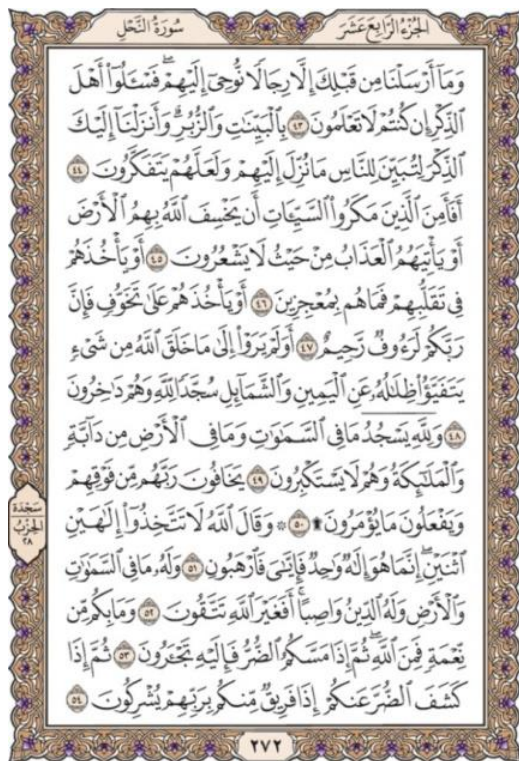 الجزء الرابع عشر
سورة النحل
وَمَآ أَرْسَلْنَا مِن قَبْلِكَ إِلَّا رِجَالًا نُّوحِىٓ إِلَيْهِمْ ۖ فَسْـَٔلُوٓا۟ أَهْلَ
ٱلذِّكْرِ إِن كُنتُمْ لَا تَعْلَمُونَ ٤٣ بِٱلْبَيِّنَـٰتِ وَٱلزُّبُرِ ۗ وَأَنزَلْنَآ إِلَيْكَ
ٱلذِّكْرَ لِتُبَيِّنَ لِلنَّاسِ مَا نُزِّلَ إِلَيْهِمْ وَلَعَلَّهُمْ يَتَفَكَّرُونَ ٤٤
أَفَأَمِنَ ٱلَّذِينَ مَكَرُوا۟ ٱلسَّيِّـَٔاتِ أَن يَخْسِفَ ٱللَّهُ بِهِمُ ٱلْأَرْضَ
أَوْ يَأْتِيَهُمُ ٱلْعَذَابُ مِنْ حَيْثُ لَا يَشْعُرُونَ ٤٥ أَوْ يَأْخُذَهُمْ
فِى تَقَلُّبِهِمْ فَمَا هُم بِمُعْجِزِينَ ٤٦ أَوْ يَأْخُذَهُمْ عَلَىٰ تَخَوُّفٍ فَإِنَّ
رَبَّكُمْ لَرَءُوفٌ رَّحِيمٌ ٤٧ أَوَلَمْ يَرَوْا۟ إِلَىٰ مَا خَلَقَ ٱللَّهُ مِن شَىْءٍ
يَتَفَيَّؤُا۟ ظِلَـٰلُهُۥ عَنِ ٱلْيَمِينِ وَٱلشَّمَآئِلِ سُجَّدًا لِّلَّهِ وَهُمْ دَٰخِرُونَ
٤٨ وَلِلَّهِ يَسْجُدُ مَا فِى ٱلسَّمَـٰوَٰتِ وَمَا فِى ٱلْأَرْضِ مِن دَآبَّةٍ
وَٱلْمَلَـٰٓئِكَةُ وَهُمْ لَا يَسْتَكْبِرُونَ ٤٩ يَخَافُونَ رَبَّهُم مِّن فَوْقِهِمْ
وَيَفْعَلُونَ مَا يُؤْمَرُونَ ۩ ٥٠ ۞ وَقَالَ ٱللَّهُ لَا تَتَّخِذُوٓا۟ إِلَـٰهَيْنِ
ٱثْنَيْنِ ۖ إِنَّمَا هُوَ إِلَـٰهٌ وَٰحِدٌ ۖ فَإِيَّـٰىَ فَٱرْهَبُونِ ٥١ وَلَهُۥ مَا فِى ٱلسَّمَـٰوَٰتِ
وَٱلْأَرْضِ وَلَهُ ٱلدِّينُ وَاصِبًا ۚ أَفَغَيْرَ ٱللَّهِ تَتَّقُونَ ٥٢ وَمَا بِكُم مِّن
نِّعْمَةٍ فَمِنَ ٱللَّهِ ۖ ثُمَّ إِذَا مَسَّكُمُ ٱلضُّرُّ فَإِلَيْهِ تَجْـَٔرُونَ ٥٣ ثُمَّ إِذَا
كَشَفَ ٱلضُّرَّ عَنكُمْ إِذَا فَرِيقٌ مِّنكُم بِرَبِّهِمْ يُشْرِكُونَ ٥٤
سجدة
الحزب
٢٨
٢٧٢